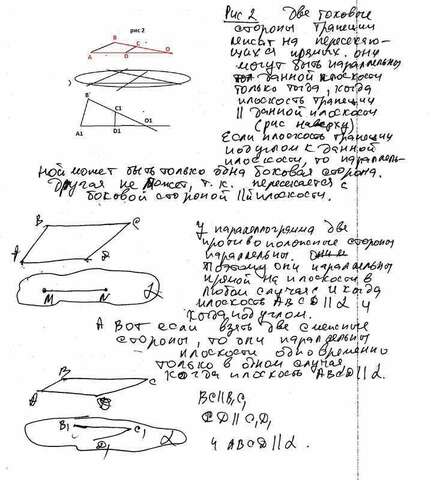 рис 2
B
C
A
D
O
B
C1
A1
D1
O1
Рис 2 Две боковые
стороны трапеции
лежат на пересекаю-
щихся прямых. они
могут быть параллельны
данной плоскости
только тогда, когда
плоскость трапеции
|| данной плоскости
(рис наверху)
Если плоскость трапеции
под углом к данной
плоскости, то параллель-
ной может быть только одна боковая сторона.
Другая не может, т.к. пересекается с
боковой стороной || плоскости.
B
C
A
D
M
N
α
У параллелограмма две
противоположные стороны
параллельны.
Поэтому они параллельны
прямой на плоскости в
любом случае и когда
плоскость ABCD || α и
когда под углом.
А вот если взять две смежные
стороны, то они параллельны
плоскости одновременно
только в одном случае
когда плоскость ABCD || α.
B
C
A
B1
C1
D1
α
BC || B1C1
CD || C1D1
и ABCD || α.